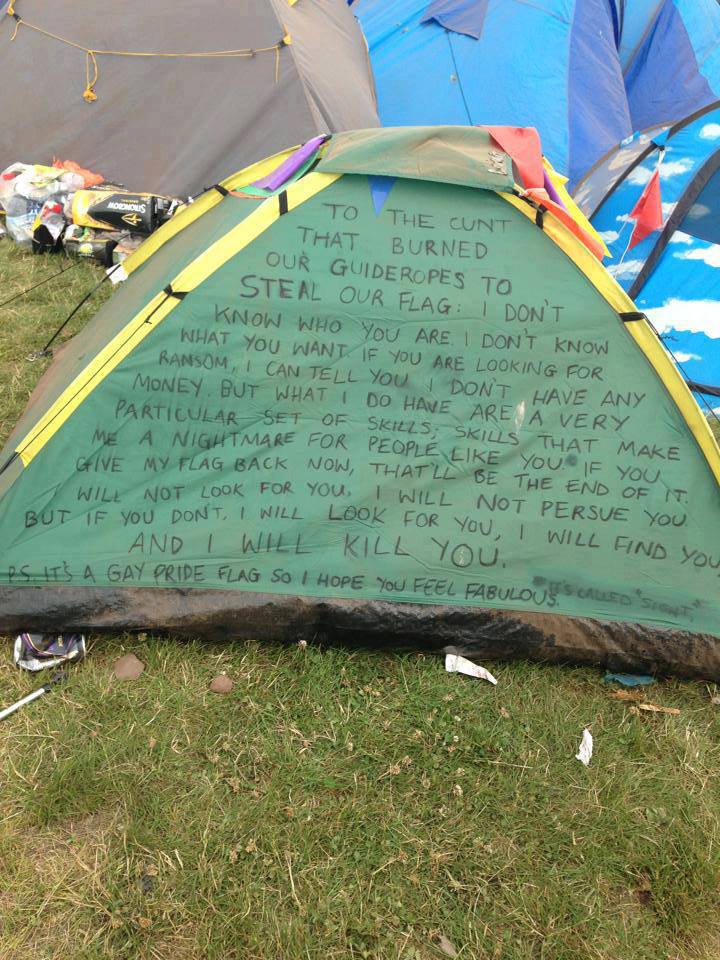 STRONGBOW
TO THE CUNT
THAT BURNED
OUR GUIDEROPES TO
STEAL OUR FLAG: I DON'T
KNOW WHO YOU ARE. I DON'T KNOW
WHAT YOU WANT. IF YOU ARE LOOKING FOR
RANSOM, I CAN TELL YOU I DON'T HAVE ANY
MONEY. BUT WHAT I DO HAVE ARE A VERY
PARTICULAR SET OF SKILLS, SKILLS THAT MAKE
ME A NIGHTMARE FOR PEOPLE LIKE YOU. IF YOU
GIVE MY FLAG BACK NOW, THAT'LL BE THE END OF IT.
WILL NOT LOOK FOR YOU, I WILL NOT PERSUE YOU.
BUT IF YOU DON'T, I WILL LOOK FOR YOU, I WILL FIND YOU
AND I WILL KILL YOU.
P.S. IT'S A GAY PRIDE FLAG SO I HOPE YOU FEEL FABULOUS.
IT'S CALLED